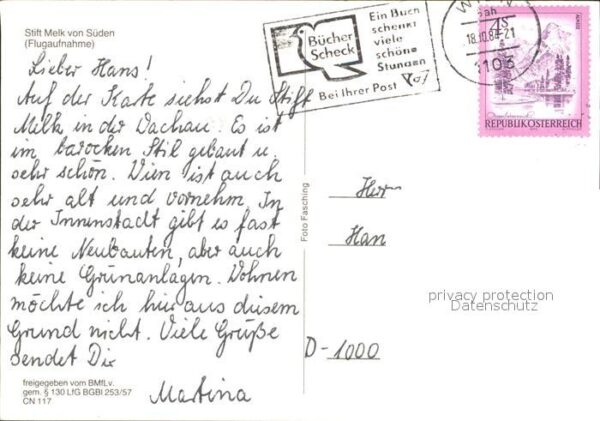 Stift Melk von Süden
(Flugaufnahme)
Lieber Hans!
Auf der Karte siehst Du Stift
Melk in der Wachau. Es ist
im barocken Stil gebaut u.
sehr schön. Wien ist auch
sehr alt und vornehm. In
der Innenstadt gibt es fast
keine Neubauten, aber auch
keine Grünanlagen. Wohnen
möchte ich hier aus diesem
Grund nicht. Viele Grüße
sendet Dir
Martina
freigegeben vom BMfLv.
gem. § 130 LfG BGBl 253/57
CN 117
Foto Fasching
Bücher
Scheck
Ein Buch
schenkt
viele
schöne
Stunden
Bei Ihrer Post
18.10.84-21
1103
4S
REPUBLIK ÖSTERREICH
Herr
Han
D-1000
privacy protection
Datenschutz